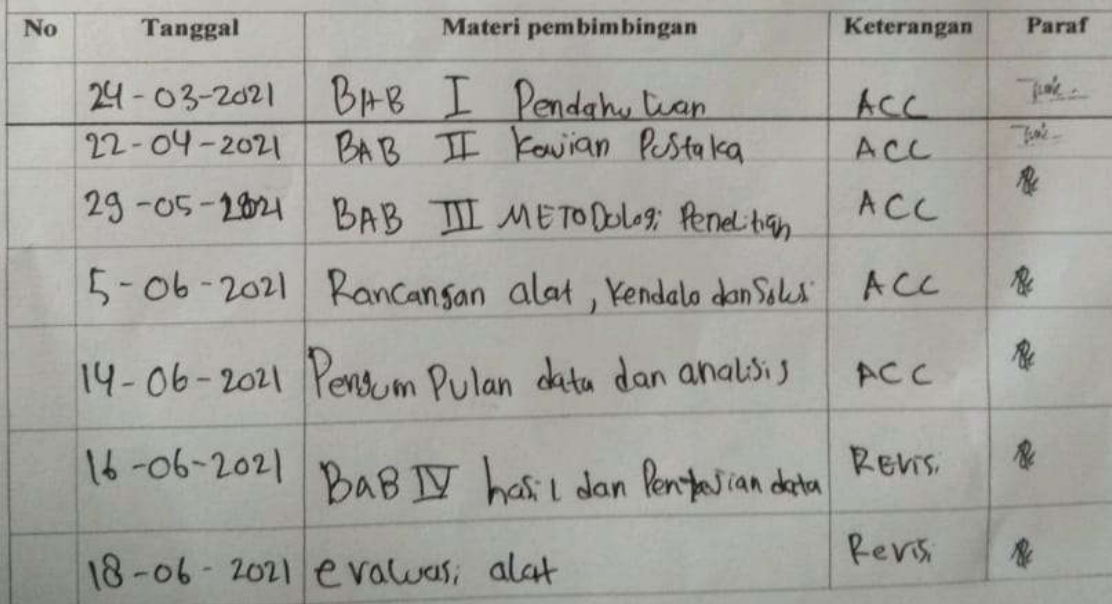 No Tanggal Materi pembimbingan Keterangan Paraf
24-03-2021 BAB I Pendahuluan ACC
22-04-2021 BAB II Kavian PuStaka ACC
29-05-2021 BAB III METODologi Penelitian ACC
5-06-2021 Rancangan alat, Kendala dan Solusi ACC
14-06-2021 Pengum Pulan data dan analisis ACC
16-06-2021 BaB IV hasil dan data REvisi
18-06-2021 evaluasi alat Revisi